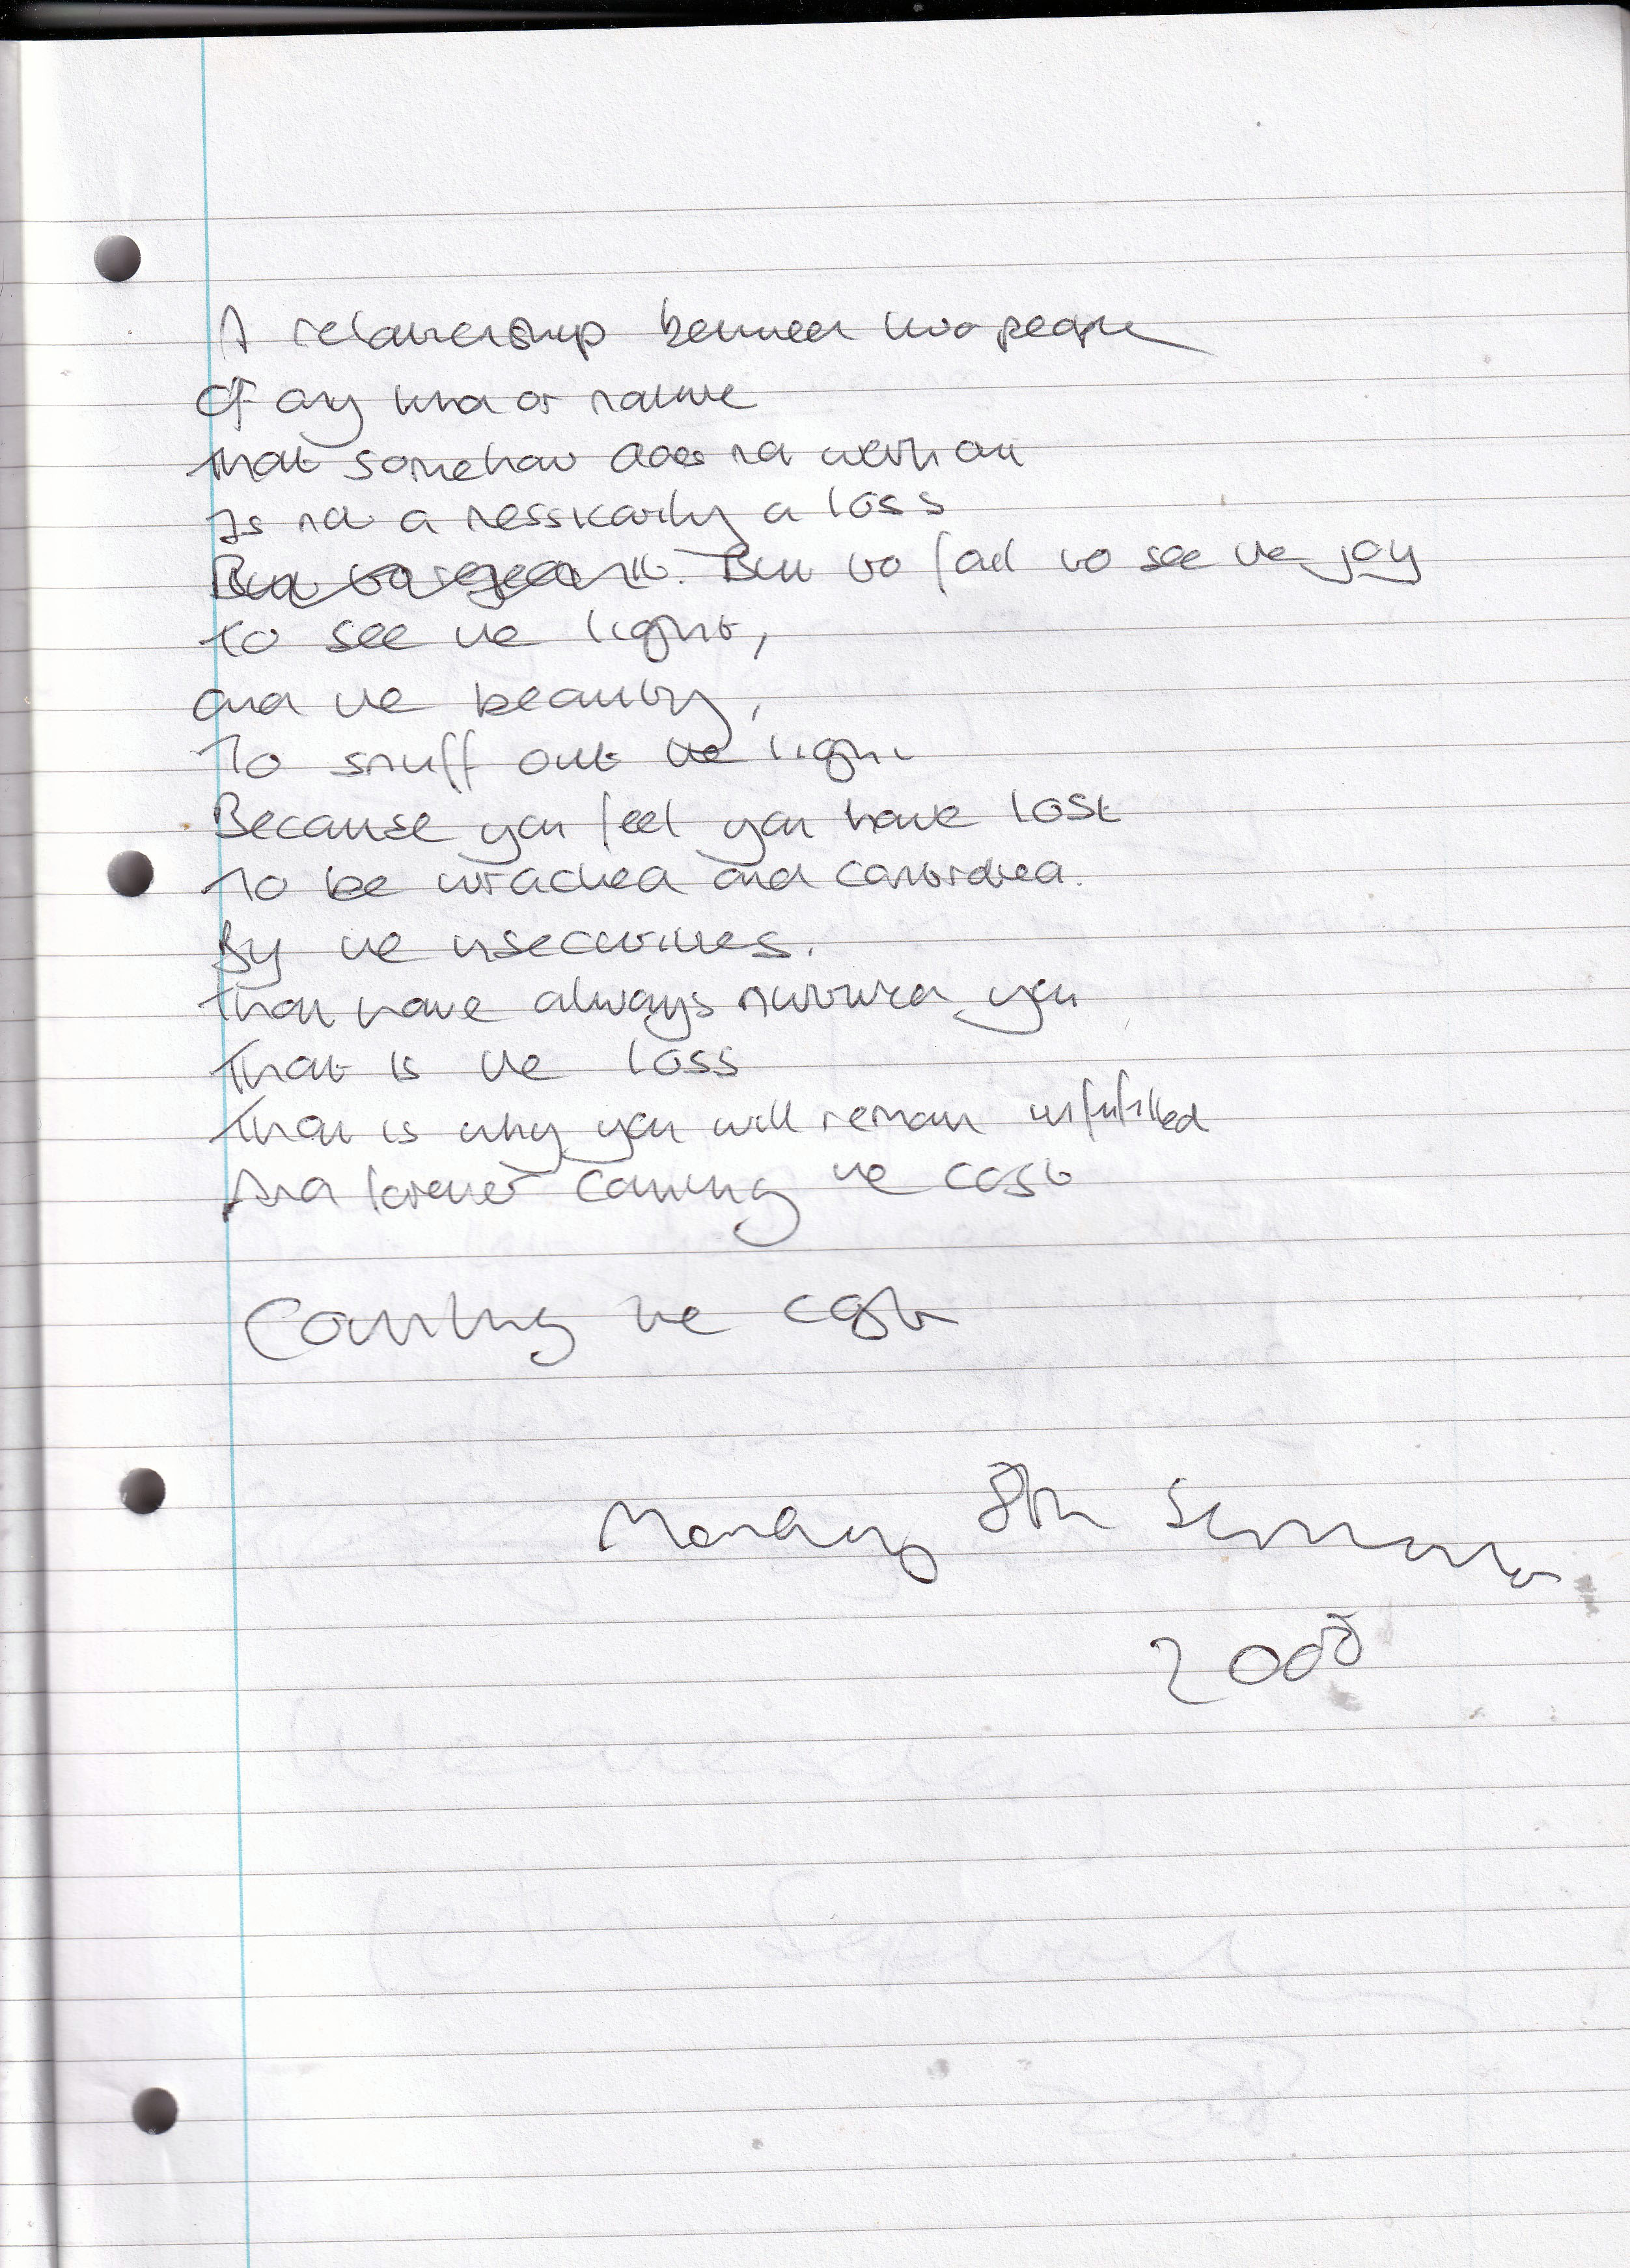 A relationship between two people
Of any kind or nature
That somehow does not work out
Is not a nessicarily a loss
But to regard it. But to fail to see the joy
To see the light,
and the beauty,
To snuff out the light
Because you feel you have lost
To be wracked and contorted.
By the insecurities.
That have always nurtured you
That is the loss
That is why you will remain unfulfilled
And forever counting the cost
Counting the cost
Monday 8th September
2008